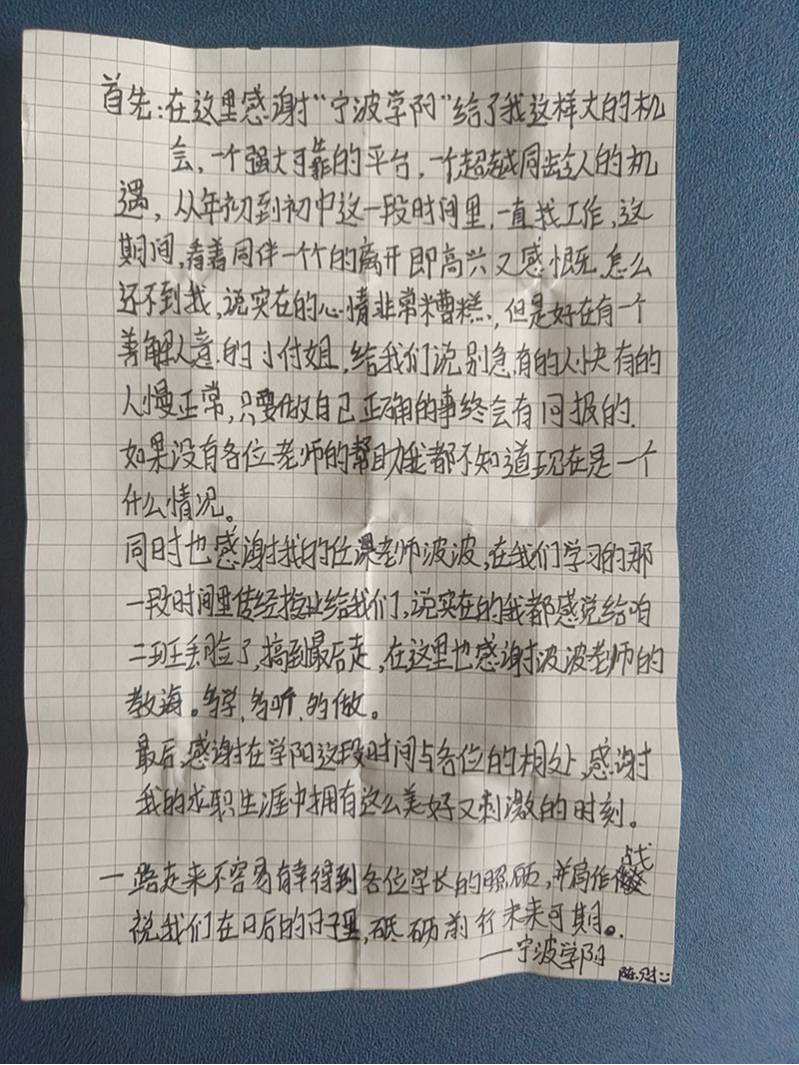 首先:在这里感谢“宁波学阳”给了我这样大的机
会,一个强大可靠的平台,一个超越同龄人的机
遇,从年初到初中这一段时间里,一直找工作,这
期间,看着同伴一个个的离开即高兴又感慨,怎么
还不到我,说实在的心情非常糟糕,但是好在有一个
善解人意的小付姐,给我们说别急,有的人快有的
人慢正常,只要做自己正确的事终会有回报的.
如果没有各位老师的帮助我都不知道现在是一个
什么情况。
同时也感谢我的任课老师波波,在我们学习的那
一段时间里传经授业给我们,说实在的我都感觉给咱
二班丢脸了,搞到最后走,在这里也感谢波波老师的
教海。多学,多听,多做。
最后,感谢在学阳这段时间与各位的相处,感谢
我的求职生涯中拥有这么美好又刺激的时刻。
一路走来不容易有幸得到各位学长的照顾,并肩作战
祝我们在日后的日子里,砥砺前行未来可期。
一宁波学阳
陈